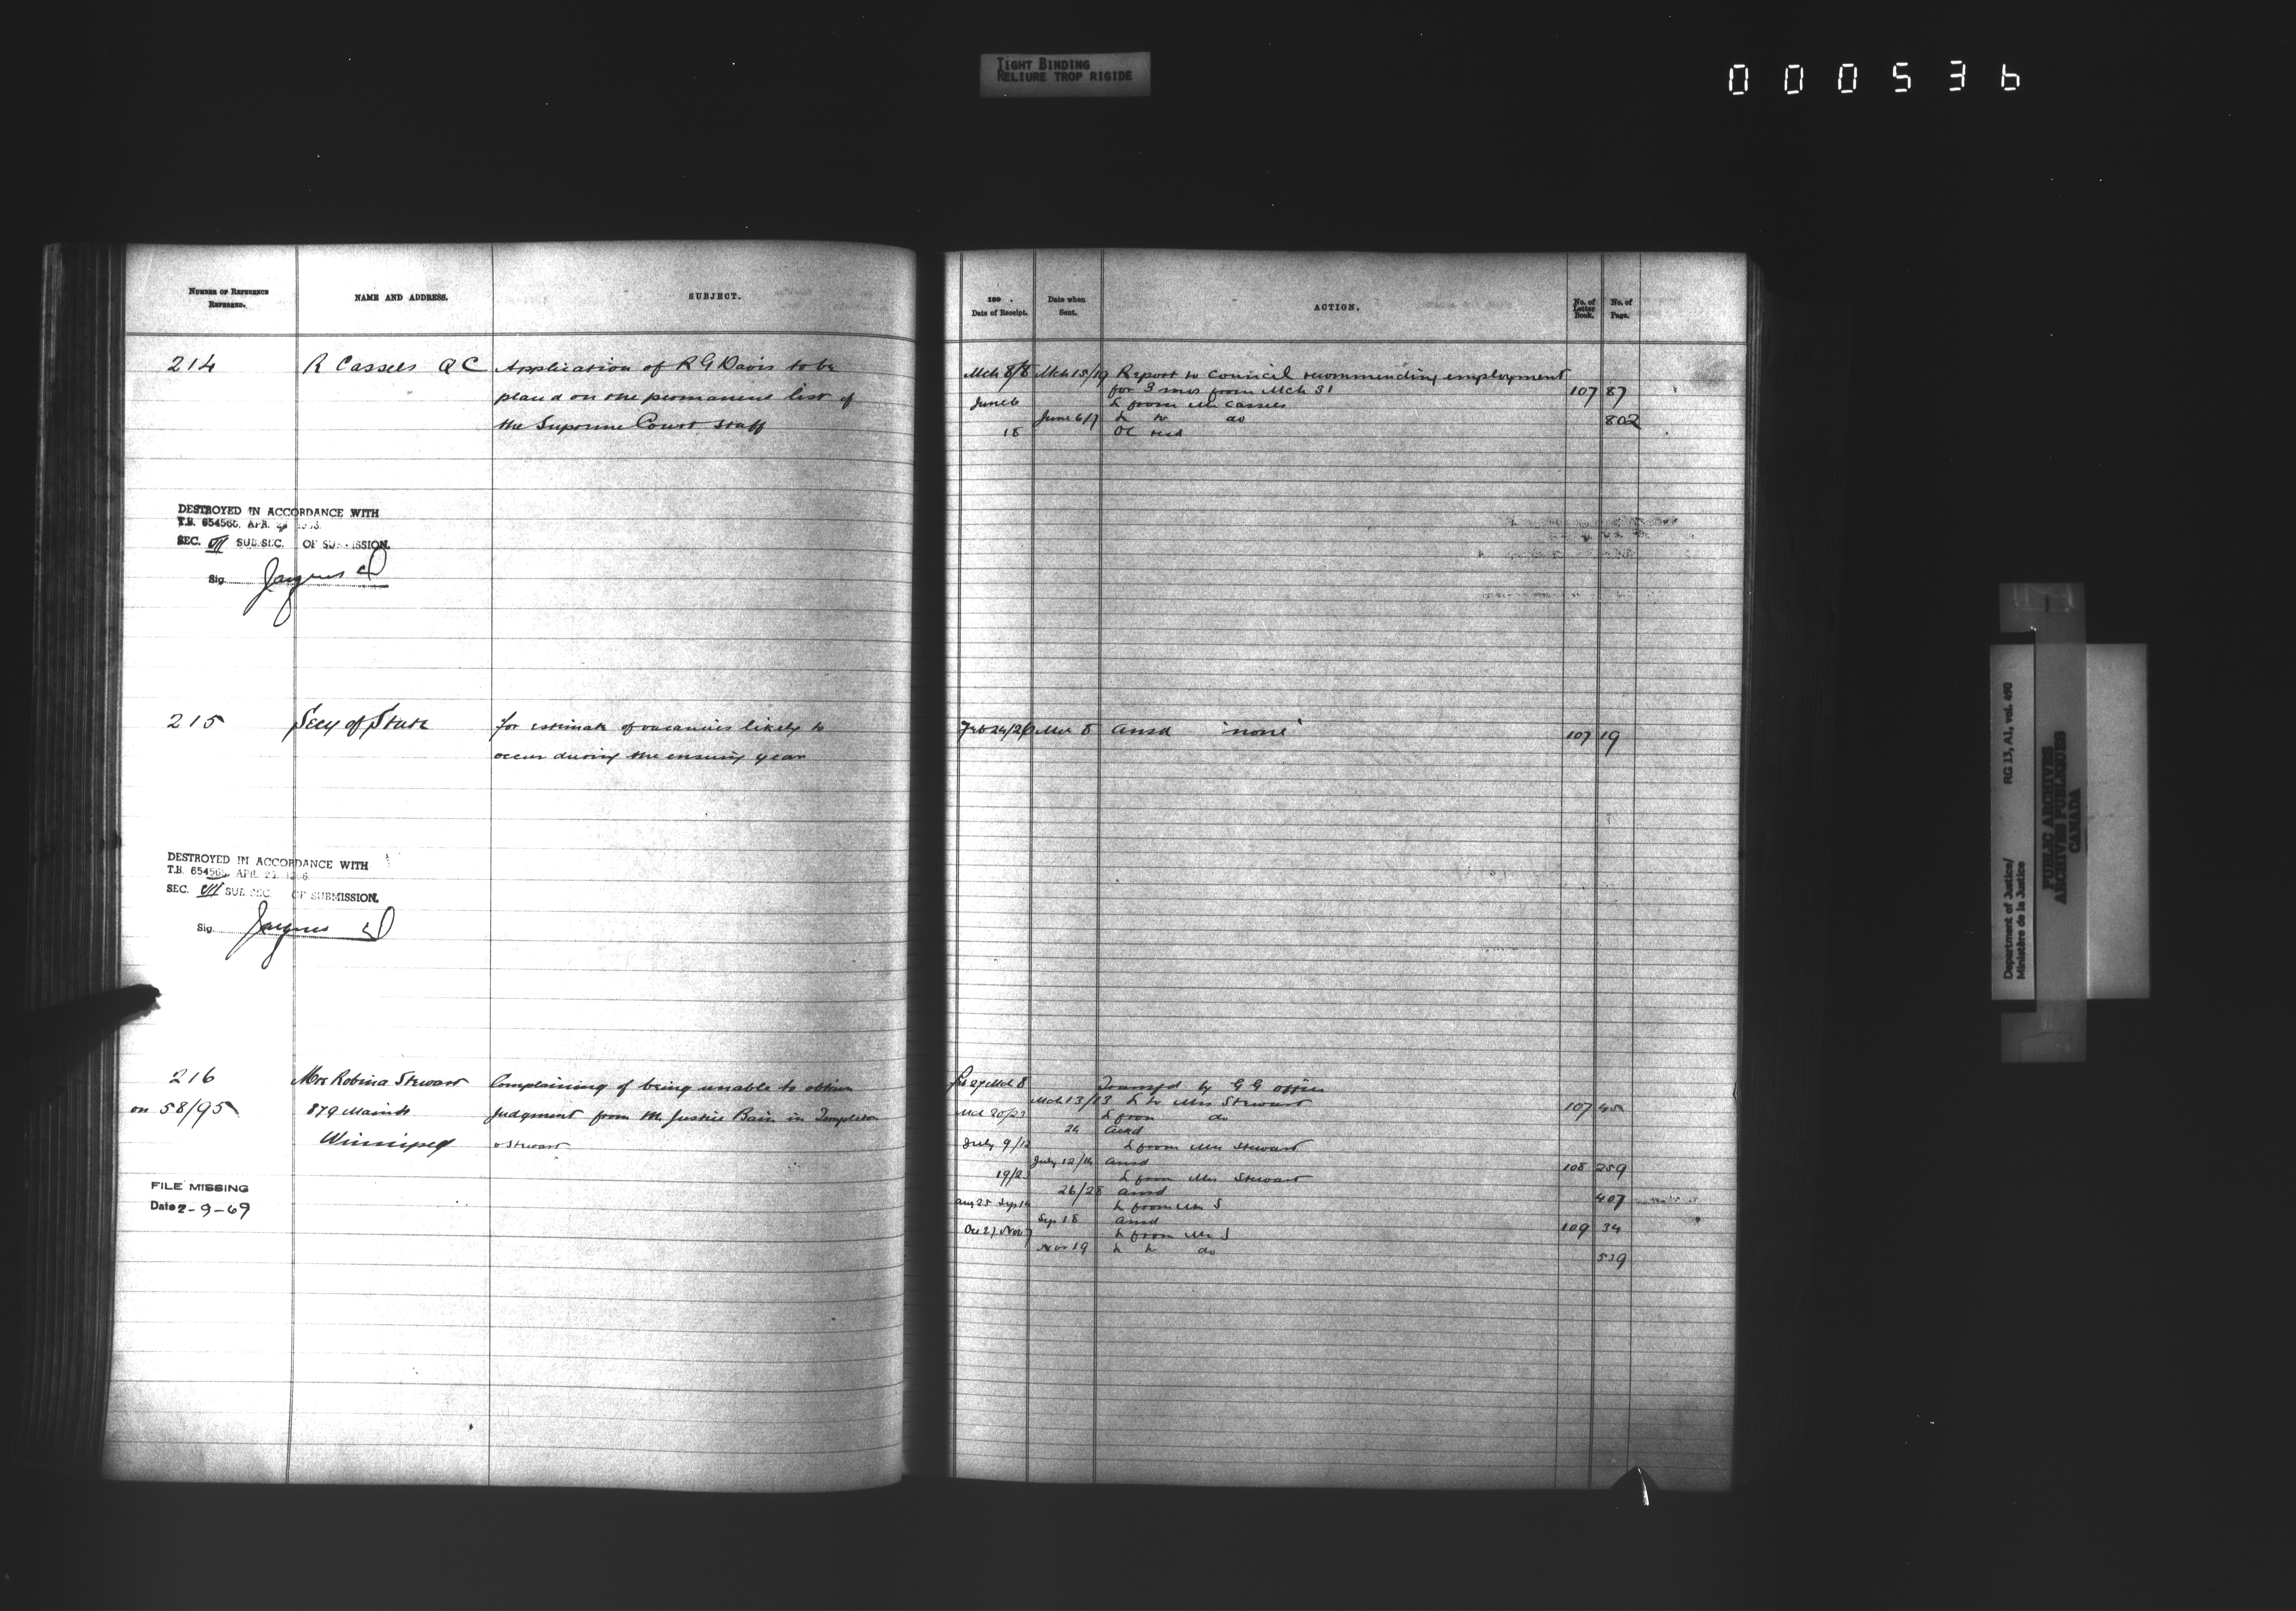 TIGHT BINDING
RELIURE TROP RIGIDE
000536
NUMBER OF REFERENCE
REFERRED.
NAME AND ADDRESS.
SUBJECT.
214 R Cassels QC Application of R G Davis to be
placed on the permanent list of
the Supreme Court staff
DESTROYED IN ACCORDANCE WITH
T.B. 654565, APR.
SEC. VII SUB.SEC. OF SUBMISSION.
Sig. Jacques
215 Secy of State for estimate of vacancies likely to
occur during the ensuing year
DESTROYED IN ACCORDANCE WITH
T.B. 654565, APR.
SEC. VII SUB.SEC. OF SUBMISSION.
Sig. Jacques
216 Mrs Robina Stewart Complaining of being unable to obtain
on 58/95 879 Main St Judgment from Mr Justice Bain in Templeton
Winnipeg v Stewart
FILE MISSING
Date 2-9-69
189 .
Date of Receipt.
Date when
Sent.
ACTION.
No. of
Letter
Book.
No. of
Page.
Mch 8/8 Mch 15/19 Report to Council recommending employment
for 3 mos from Mch 31 107 87
June 6 L from Mr Cassels
June 6/7 L to do 802
18 OC recd
Feb 24/26 Mch 8 Ansd 'none' 107 19
Feb 27 Mch 8 Transfd by GG office
Mch 13/13 L to Mrs Stewart 107 45
Mch 20/23 L from do
24 Ackd
July 9/12 L from Mrs Stewart
July 12/14 Ansd 108 259
19/23 L from Mrs Stewart
26/28 Ansd 407
Aug 25 Sep 14 L from Mrs S
Sep 18 Ansd 109 34
Oct 27 Nov 7 L from Mrs S
Nov 19 L to do 539
Department of Justice/ RG 13, A1, vol. 490
Ministère de la Justice
PUBLIC ARCHIVES
ARCHIVES PUBLIQUES
CANADA